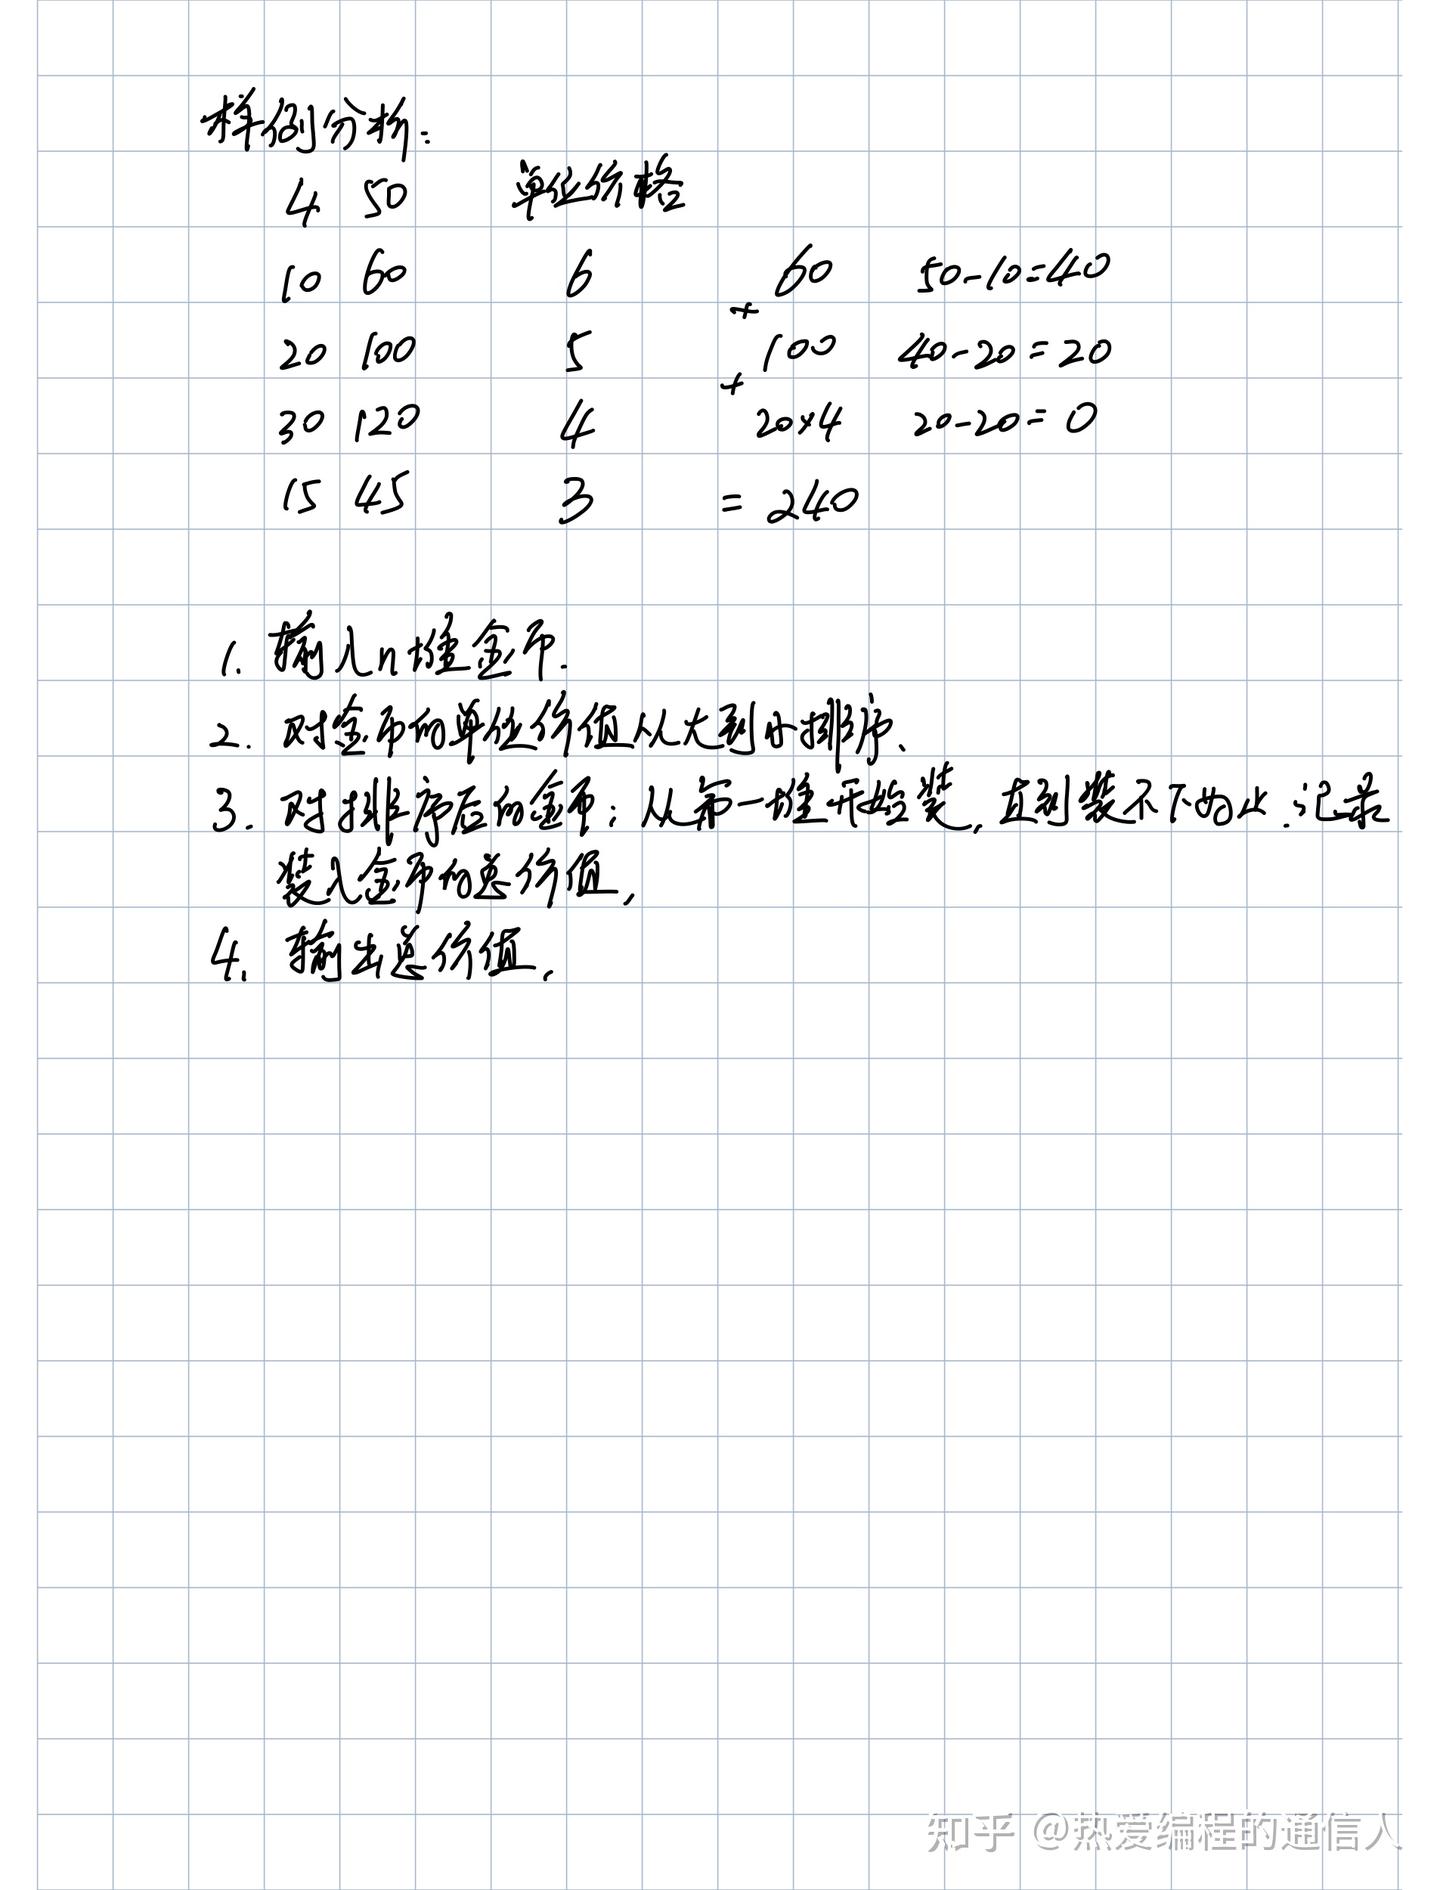 样例分析：
4 50 单位价格
10 60 6 60 50-10=40
+
20 100 5 100 40-20=20
+
30 120 4 20×4 20-20=0
15 45 3 = 240
1. 输入n堆金币.
2. 对金币的单位价值从大到小排序、
3. 对排序后的金币；从第一堆开始装，直到装不下为止.记录
装入金币的总价值，
4. 输出总价值，
知乎 @热爱编程的通信人